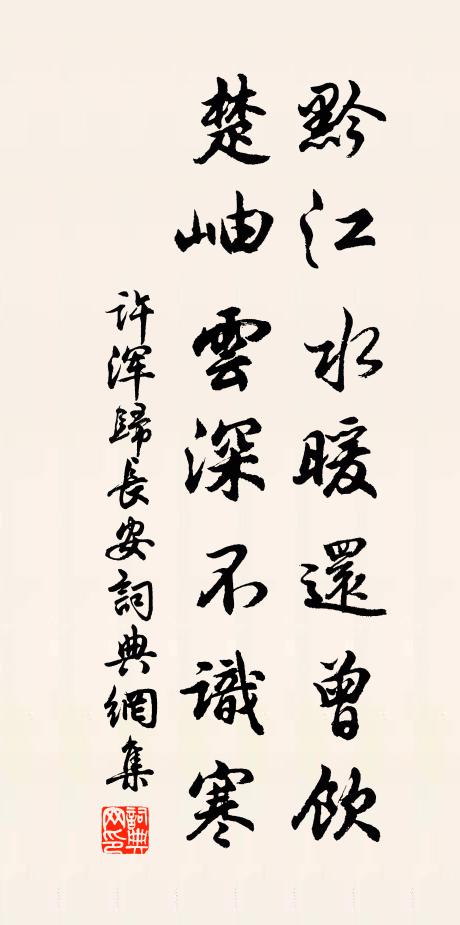 黔江水暖還曾飲
楚岫雲深不識寒
许渾歸長安詞典網集
詞典网印